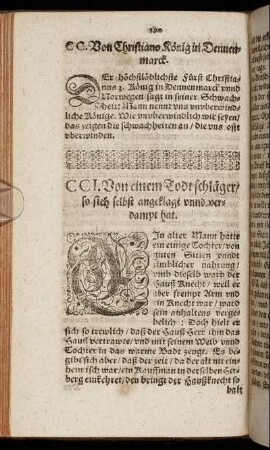 CC. Von Christiano König in Dennen-
marck.
DEr höchstlöblichste Fürst Christia-
nus 3. König in Dennenmarck vnnd
Norwegen sagt in seiner Schwach-
heit: Man nennt vns vnüberwind-
liche Könige. Wie vnüberwindlich wir seyen/
das zeigen die schwachheiten an/ die vns offt
vberwinden.
CCI. Von einem Todtschläger/
so sich selbst angeklagt vnnd ver-
dampt hat.
EIn alter Mann hatte
ein einige Tochter/ von
guten Sitten vnndt
zimblicher nahrung/
vmb dieselb warb der
Hauß Knecht/ weil er
aber frempt Arm vnd
ein Knecht war/ ward
sein anhaltens verge-
belich: Doch hielt er
sich so trewlich/ daß der Hauß Herr ihm das
Hauß vertrawte/ vnd mit seinem Weib vnnd
Tochter in das warme Badt zeugt. Es be-
gibt sich aber/ daß der zeit/ da der alt nit ein-
heim isch war/ ein Kauffman in derselben Her-
berg einkehret/ den bringt der Haußknecht so
balt